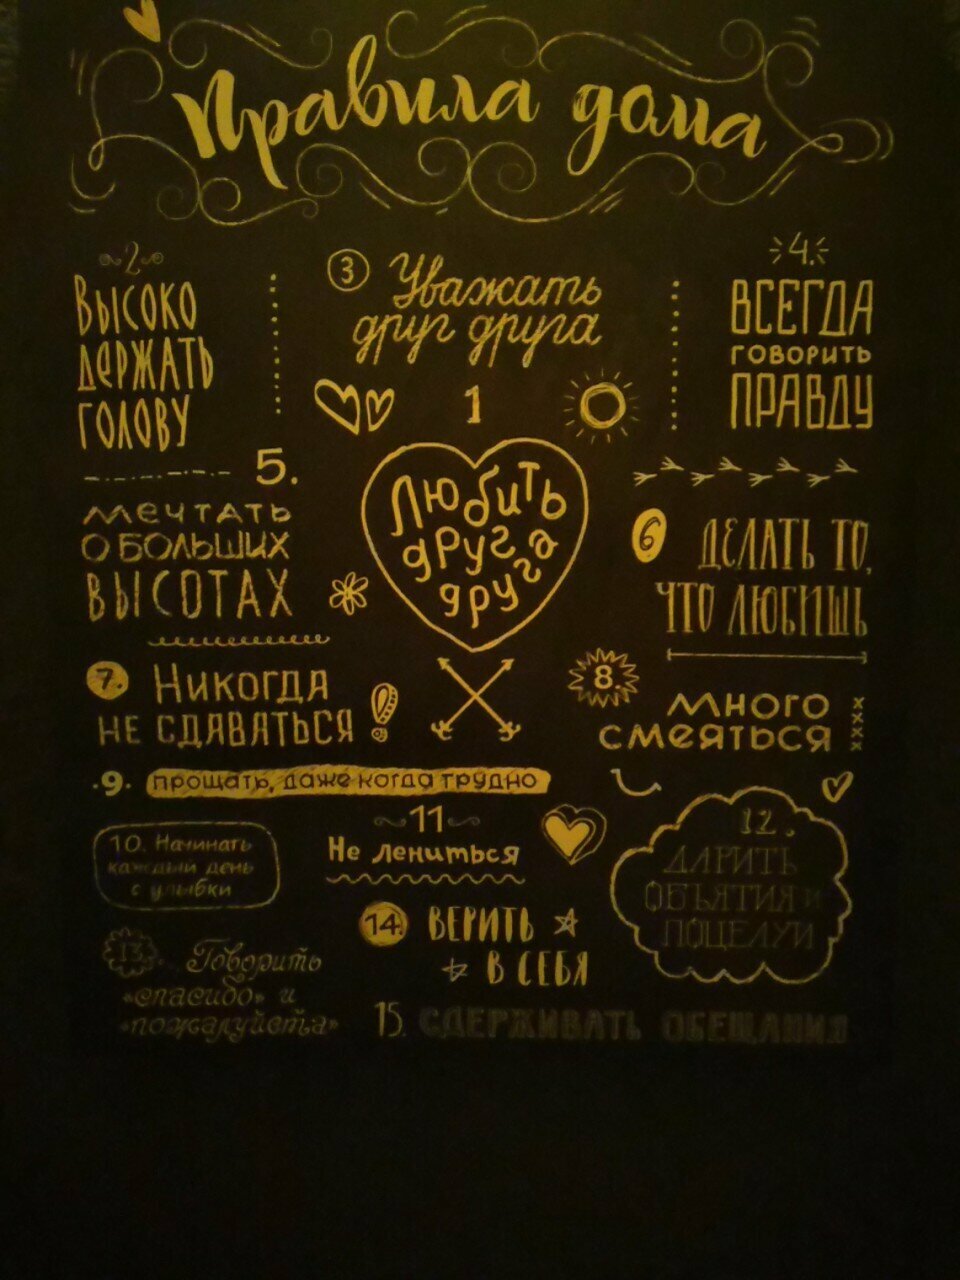 Правила дома
2.
ВЫСОКО
ДЕРЖАТЬ
ГОЛОВУ
3 Уважать
друг друга
4.
ВСЕГДА
ГОВОРИТЬ
ПРАВДУ
1
Любить
друг
друга
5.
МЕЧТАТЬ
О БОЛЬШИХ
ВЫСОТАХ
6 ДЕЛАТЬ ТО,
ЧТО ЛЮБИШЬ
7. НИКОГДА
НЕ СДАВАТЬСЯ!
8.
МНОГО
СМЕЯТЬСЯ
.9. ПРОЩАТЬ, ДАЖЕ КОГДА ТРУДНО
10. Начинать
каждый день
с улыбки
11
Не лениться
12.
ДАРИТЬ
ОБЪЯТИЯ И
ПОЦЕЛУИ
13. Говорить
«спасибо» и
«пожалуйста»
14. ВЕРИТЬ
В СЕБЯ
15. СДЕРЖИВАТЬ ОБЕЩАНИЯ